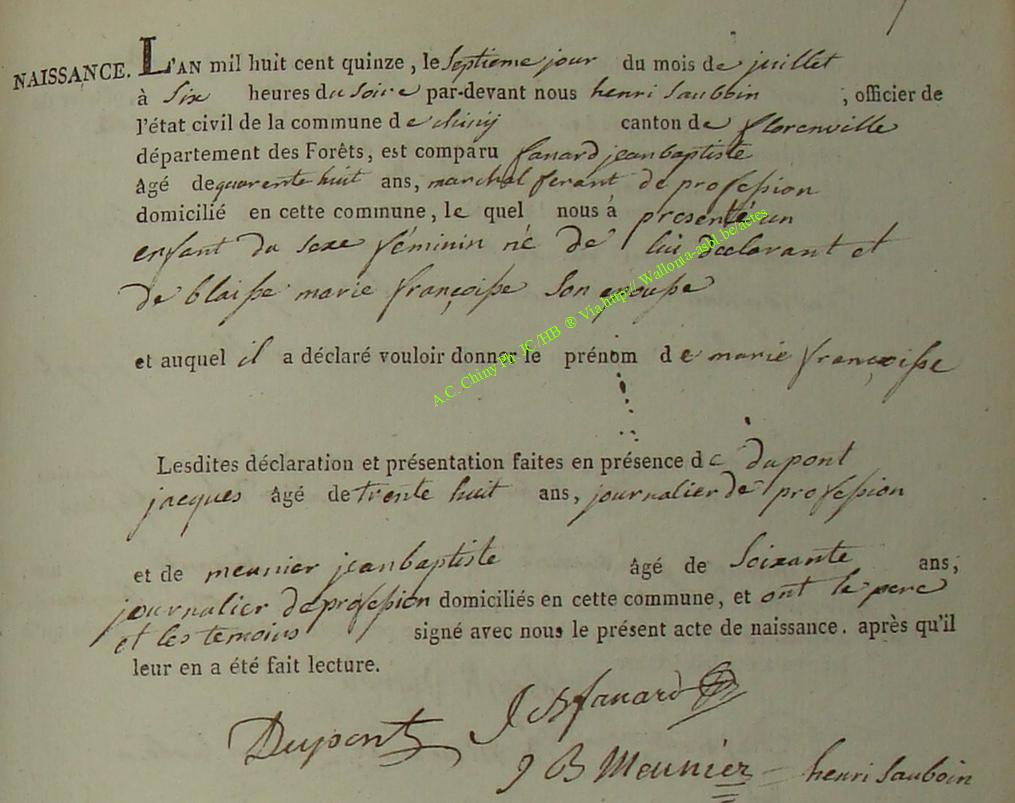 NAISSANCE. L'AN mil huit cent quinze, le septieme jour du mois de juillet
à six heures du soire par-devant nous henri sauboin , officier de
l'état civil de la commune de chiny canton de florenville
département des Forêts, est comparu fanard jean baptiste
âgé de quarente huit ans, marchal ferant de profession
domicilié en cette commune, le quel nous a presenté un
enfant du sexe féminin né de lui declarant et
de blaisse marie françoisse son epousse
et auquel il a déclaré vouloir donner le prénom de marie françoisse
Lesdites déclaration et présentation faites en présence de dupont
jacques âgé de trente huit ans, journalier de profession
et de meunier jean baptiste âgé de soixante ans,
journalier de profession domiciliés en cette commune, et ont le pere
et les temoins signé avec nous le présent acte de naissance. après qu'il
leur en a été fait lecture.
J B fanard
Dupont
J B Meunier henri sauboin
A.C. Chiny Ph JC/HB ® Via http:// Wallonia-asbl.be/actes